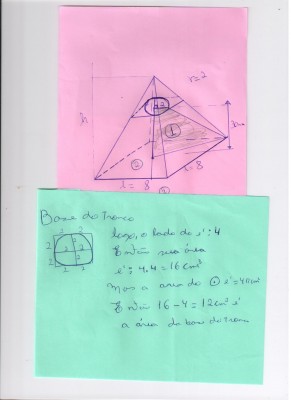 r=2
h
①
②
l = 8
l = 8
Base do Tronco
logo, o lado do é: 4
2 2
Então sua área
é: 4.4 = 16 cm²
Mas a area do é = 4πcm²
Então 16-4 = 12cm² é
a área da base do tronco